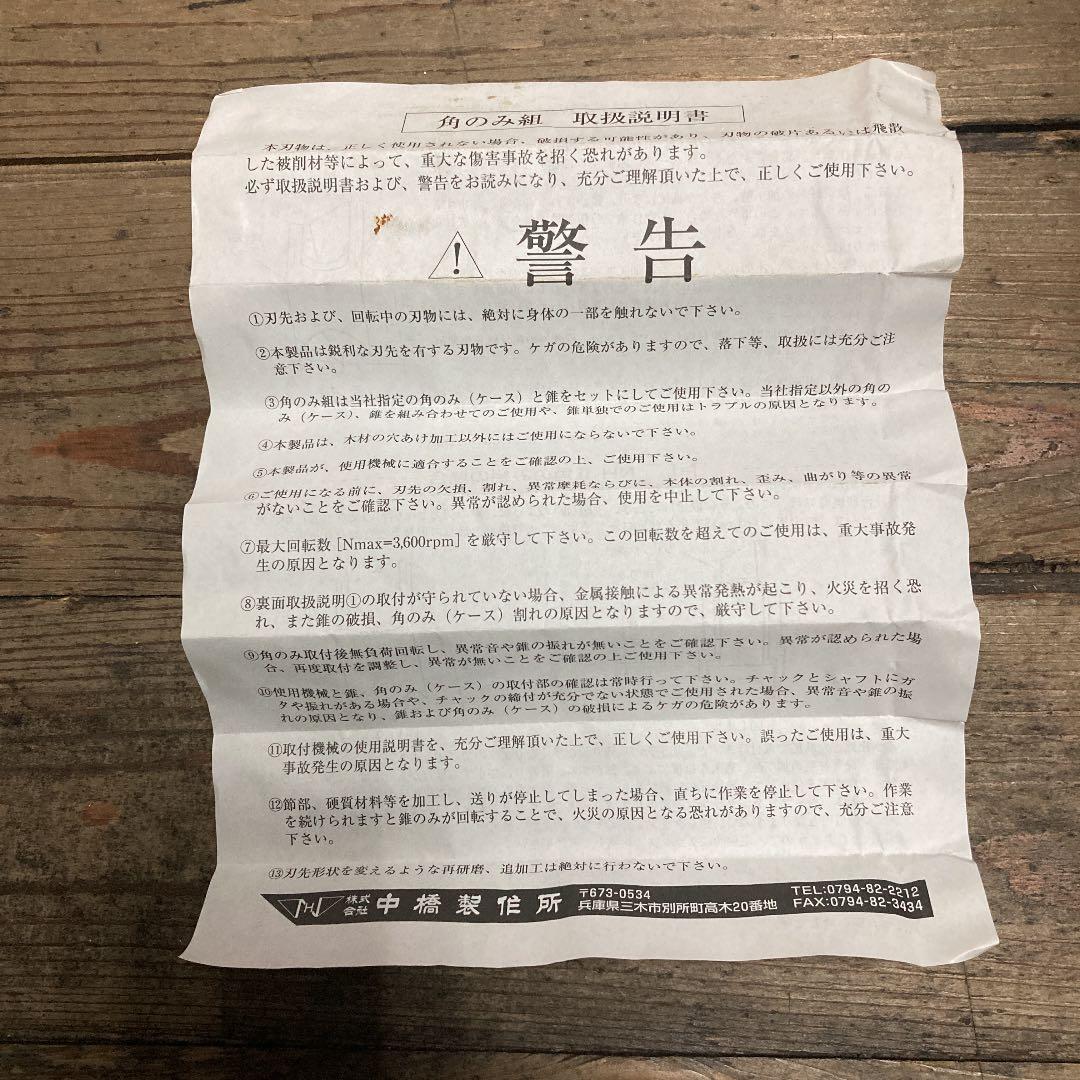 角のみ組　取扱説明書
本刃物は、正しく使用されない場合、破損する可能性があり、刃物の破片あるいは飛散
した被削材等によって、重大な傷害事故を招く恐れがあります。
必ず取扱説明書および、警告をお読みになり、充分ご理解頂いた上で、正しくご使用下さい。
警告
①刃先および、回転中の刃物には、絶対に身体の一部を触れないで下さい。
②本製品は鋭利な刃先を有する刃物です。ケガの危険がありますので、落下等、取扱には充分ご注
意下さい。
③角のみ組は当社指定の角のみ（ケース）と錐をセットにしてご使用下さい。当社指定以外の角の
み（ケース）、錐を組み合わせてのご使用や、錐単独でのご使用はトラブルの原因となります。
④本製品は、木材の穴あけ加工以外にはご使用にならないで下さい。
⑤本製品が、使用機械に適合することをご確認の上、ご使用下さい。
⑥ご使用になる前に、刃先の欠損、割れ、異常摩耗ならびに、本体の割れ、歪み、曲がり等の異常
がないことをご確認下さい。異常が認められた場合、使用を中止して下さい。
⑦最大回転数［Nmax=3,600rpm］を厳守して下さい。この回転数を超えてのご使用は、重大事故発
生の原因となります。
⑧裏面取扱説明①の取付が守られていない場合、金属接触による異常発熱が起こり、火災を招く恐
れ、また錐の破損、角のみ（ケース）割れの原因となりますので、厳守して下さい。
⑨角のみ取付後無負荷回転し、異常音や錐の振れが無いことをご確認下さい。異常が認められた場
合、再度取付を調整し、異常が無いことをご確認の上ご使用下さい。
⑩使用機械と錐、角のみ（ケース）の取付部の確認は常時行って下さい。チャックとシャフトにガ
タや振れがある場合や、チャックの締付が充分でない状態でご使用された場合、異常音や錐の振
れの原因となり、錐および角のみ（ケース）の破損によるケガの危険があります。
⑪取付機械の使用説明書を、充分ご理解頂いた上で、正しくご使用下さい。誤ったご使用は、重大
事故発生の原因となります。
⑫節部、硬質材料等を加工し、送りが停止してしまった場合、直ちに作業を停止して下さい。作業
を続けられますと錐のみが回転することで、火災の原因となる恐れがありますので、充分ご注意
下さい。
⑬刃先形状を変えるような再研磨、追加工は絶対に行わないで下さい。
株式会社 中橋製作所
〒673-0534
兵庫県三木市別所町高木20番地
TEL:0794-82-2212
FAX:0794-82-3434